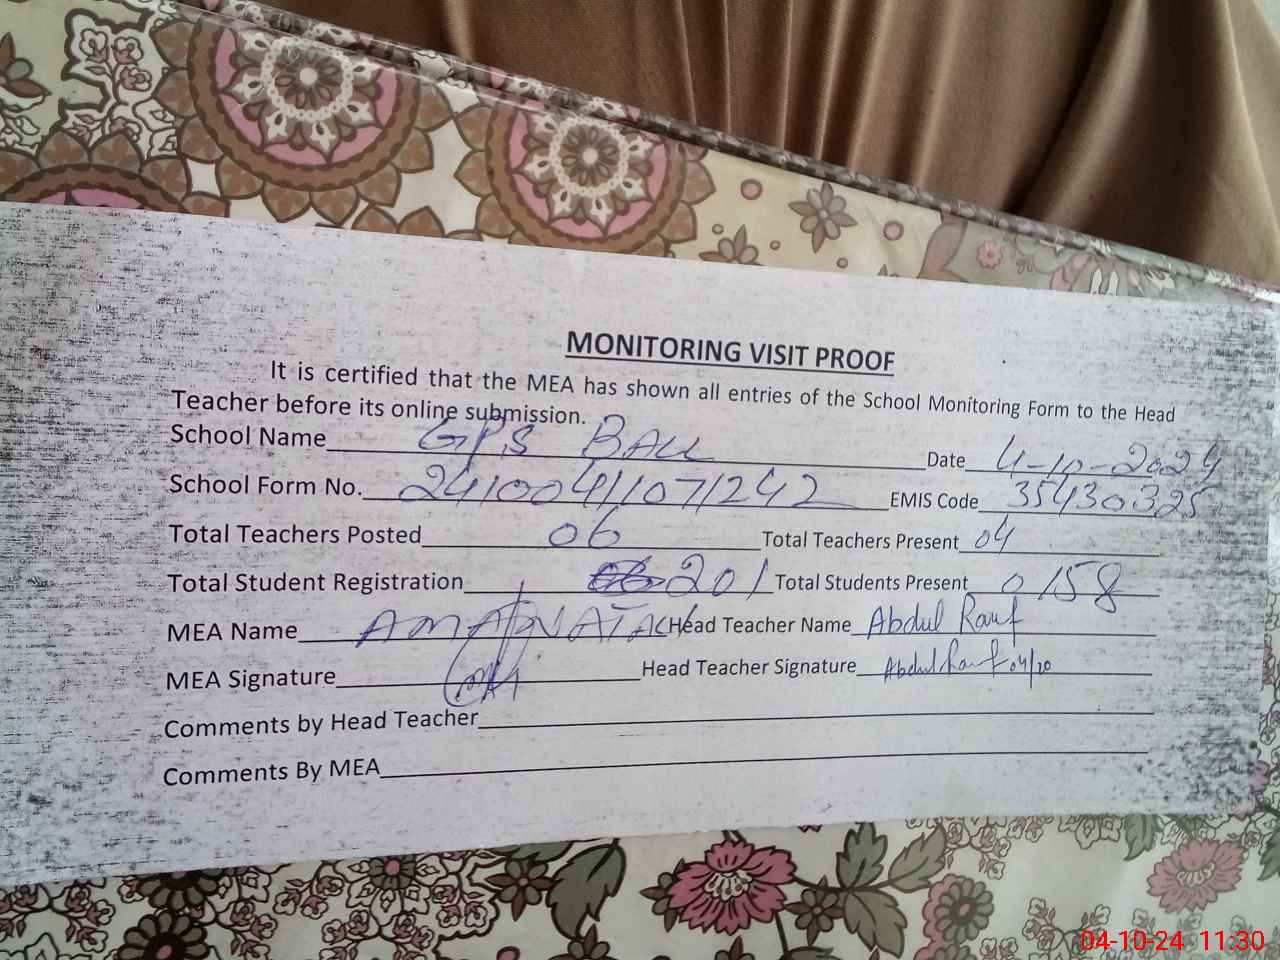 MONITORING VISIT PROOF
It is certified that the MEA has shown all entries of the School Monitoring Form to the Head
Teacher before its online submission.
School Name GPS BALL Date 4-10-2024
School Form No. 24100411071242 EMIS Code 35430325
Total Teachers Posted 06 Total Teachers Present 04
Total Student Registration 201 Total Students Present 0158
MEA Name Head Teacher Name Abdul Rauf
MEA Signature Head Teacher Signature Abdul Rauf 04/10
Comments by Head Teacher
Comments By MEA
04-10-24 11:30